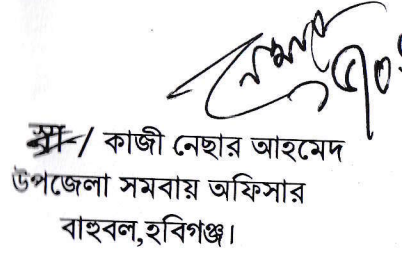 স্বা-/ কাজী নেছার আহমেদ
উপজেলা সমবায় অফিসার
বাহুবল,হবিগঞ্জ।